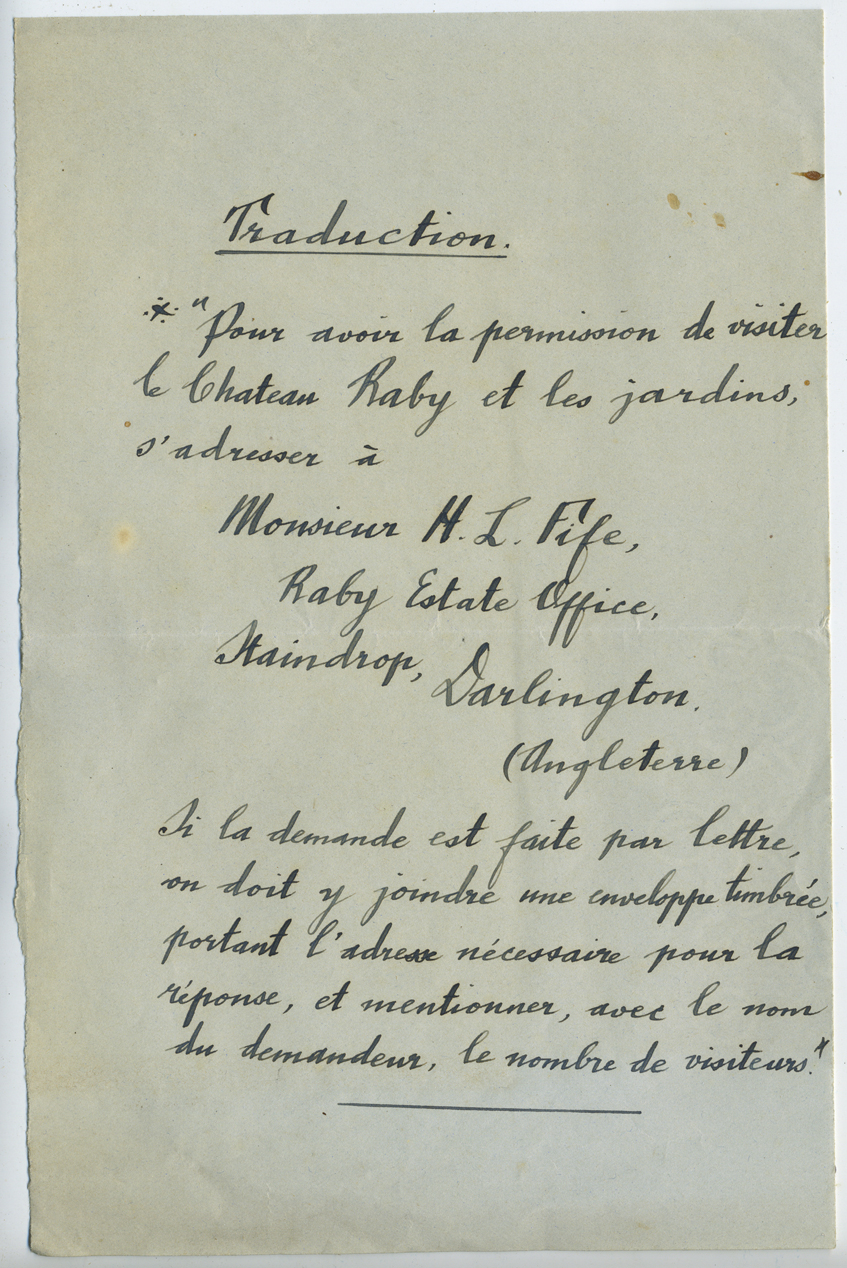 Traduction.
※ "Pour avoir la permission de visiter
le Chateau Raby et les jardins,
s'adresser à
Monsieur H. L. Fife,
Raby Estate Office,
Staindrop, Darlington.
(Angleterre)
Si la demande est faite par lettre,
on doit y joindre une enveloppe timbrée,
portant l'adresse nécessaire pour la
réponse, et mentionner, avec le nom
du demandeur, le nombre de visiteurs."